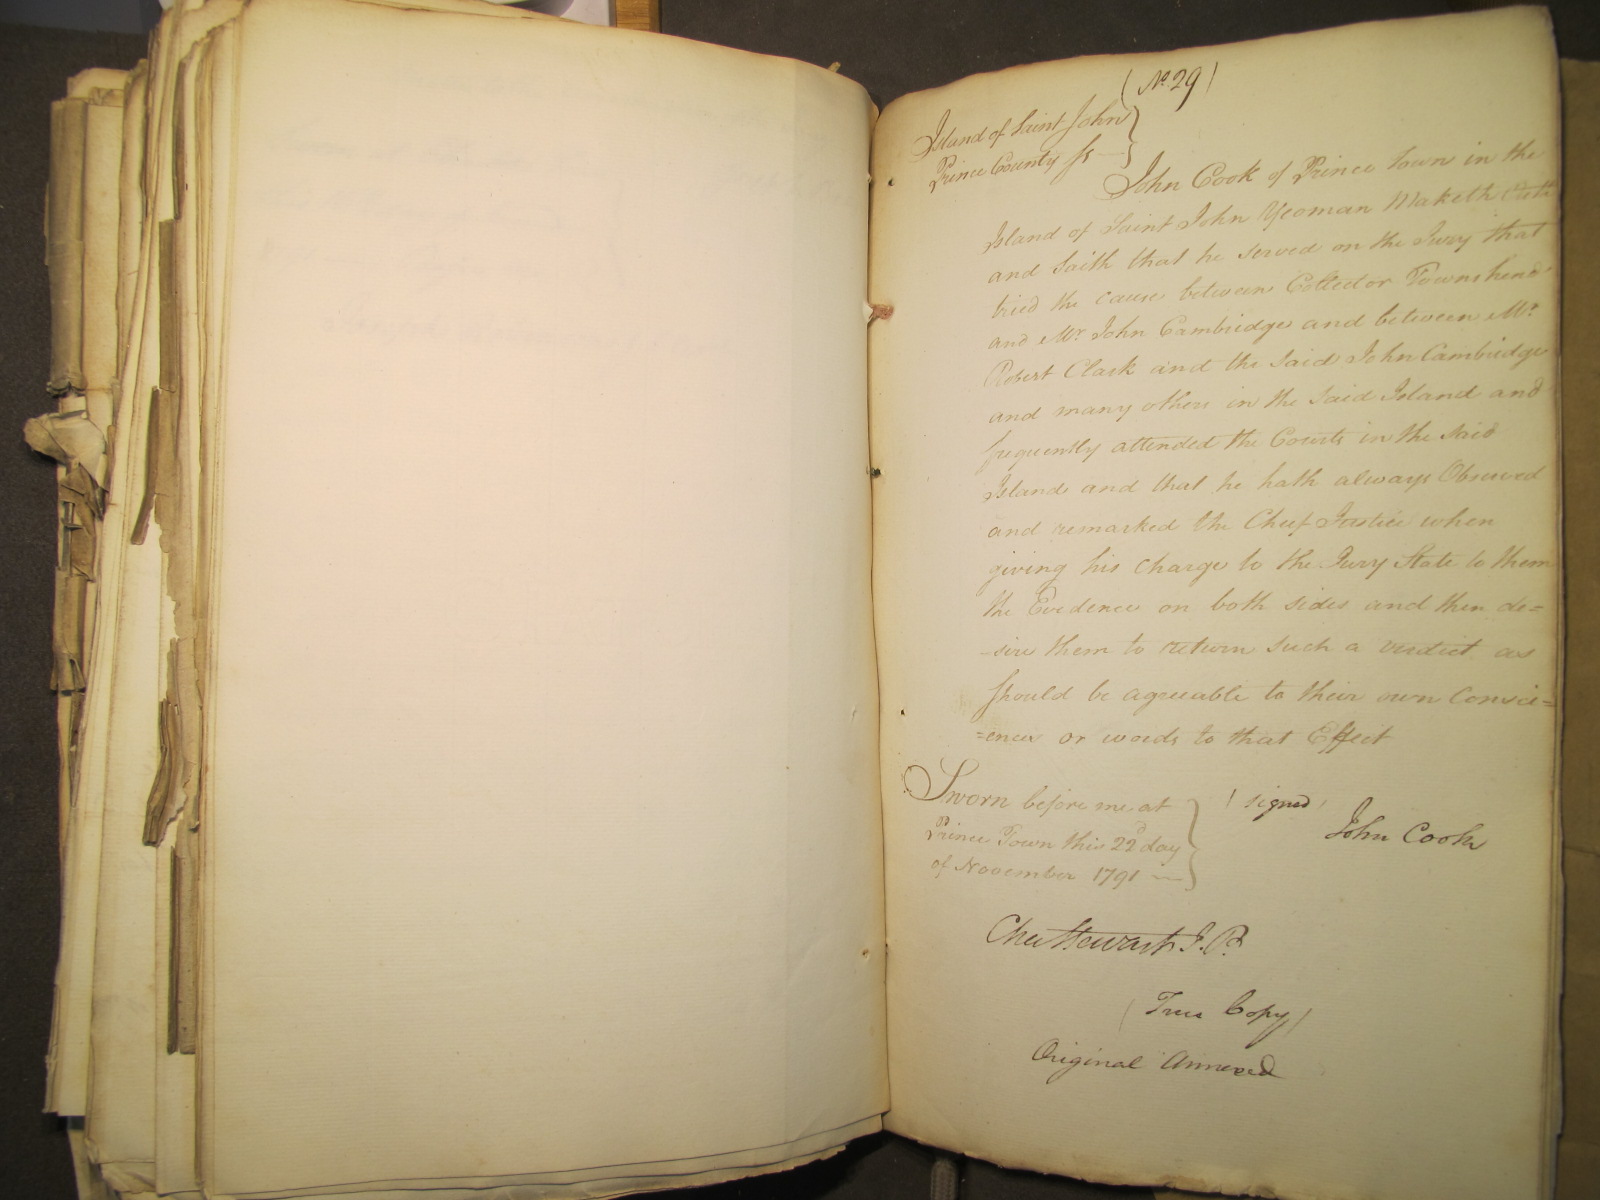 (No. 29)
Island of Saint John }
Prince County Ss }
John Cook of Prince Town in the
Island of Saint John Yeoman Maketh Oath
and Saith that he Served on the Jury that
tried the cause between Collector Townshend
and Mr. John Cambridge and between Mr.
Robert Clark and the Said John Cambridge
and many others in the Said Island and
frequently attended the Courts in the Said
Island and that he hath always Observed
and remarked the Cheif Justice when
giving his Charge to the Jury State to them
the Evidence on both sides and then de=
-sire them to return such a verdict as
Should be agreeable to their own Consci=
=ence or words to that Effect
Sworn before me at
Prince Town this 22d day
of November 1791
(signed)
John Cook
Chas Stewart J. P.
(True Copy)
Original Annexed